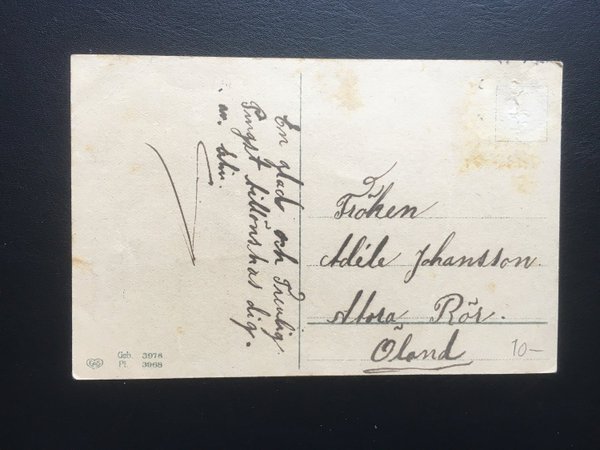 En glad och Trevlig
Pingst tillönskas dig.
av
Fröken
Adéle Johansson.
Stora Rör.
Öland
10-
Geb. 3978
Pl. 3968